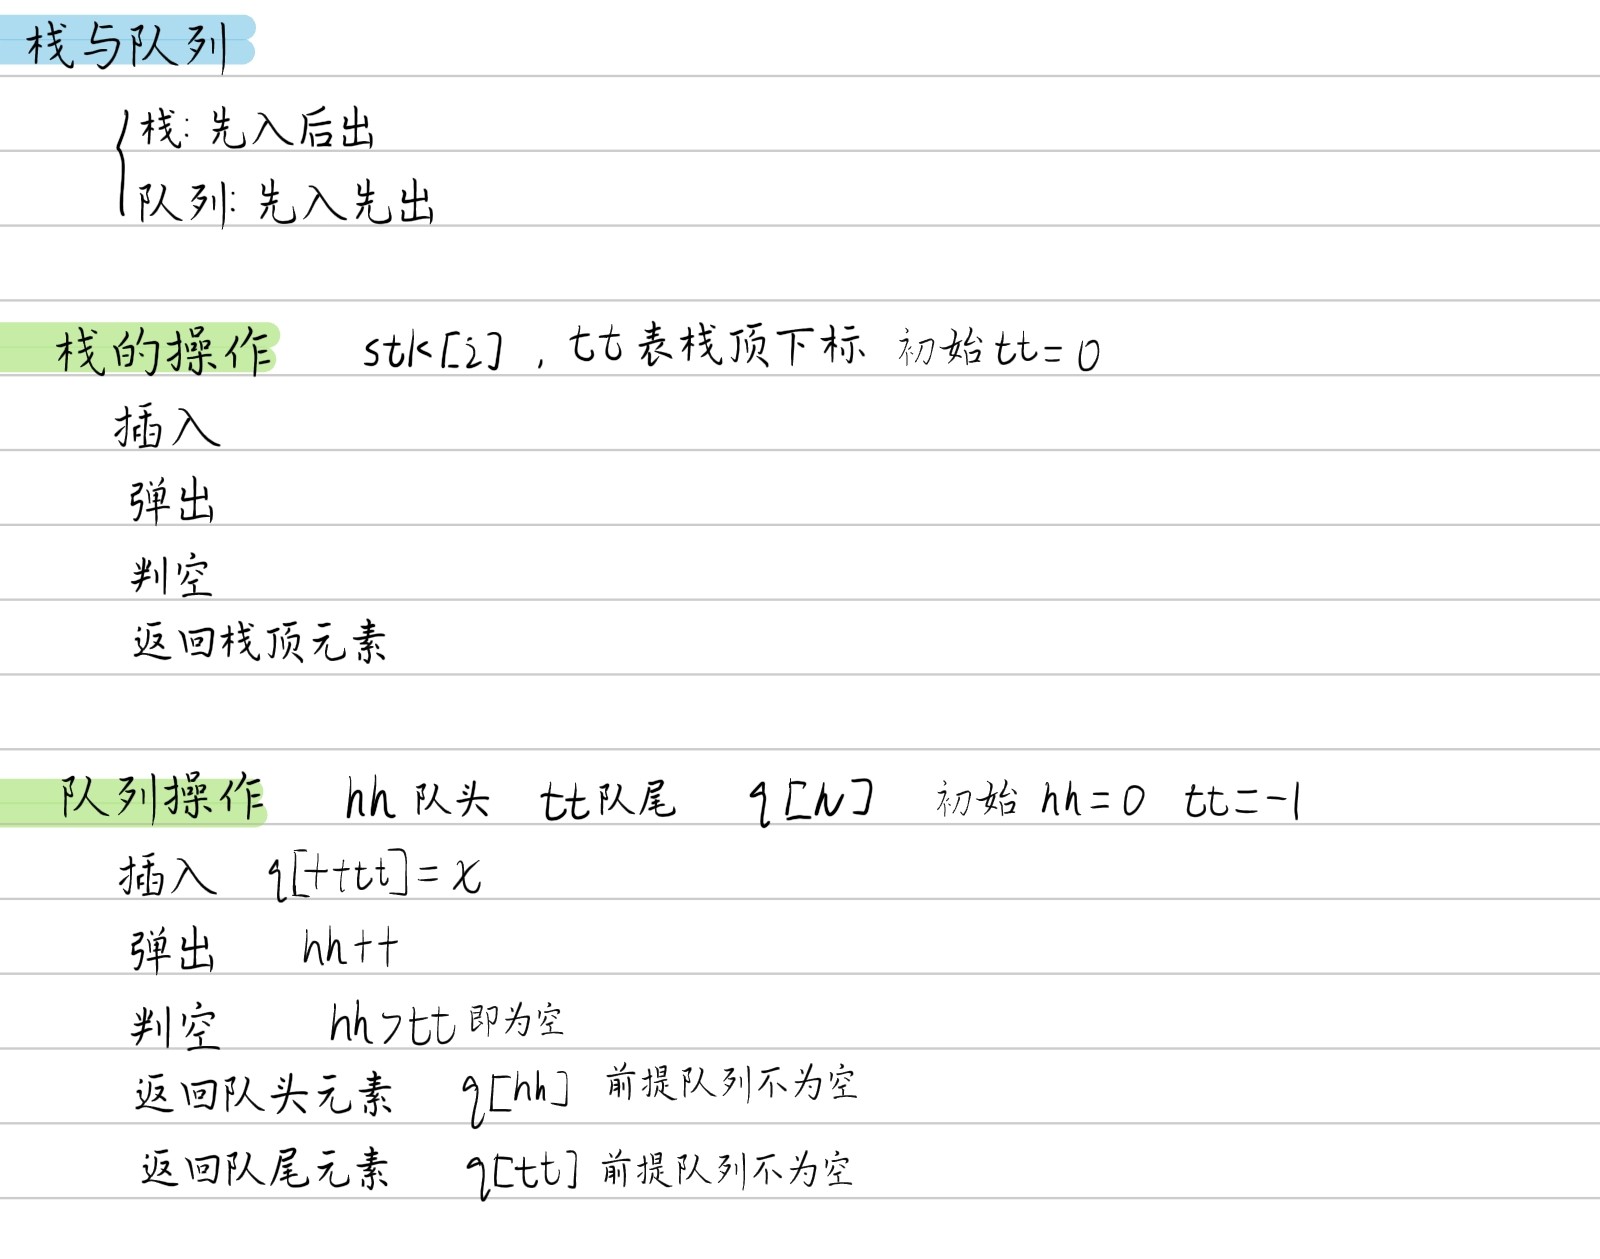 栈与队列
栈: 先入后出
队列: 先入先出
栈的操作 stk[i] , tt表栈顶下标 初始tt=0
插入
弹出
判空
返回栈顶元素
队列操作 hh队头 tt队尾 q[N] 初始 hh=0 tt=-1
插入 q[++tt]=x
弹出 hh++
判空 hh>tt即为空
返回队头元素 q[hh] 前提队列不为空
返回队尾元素 q[tt] 前提队列不为空